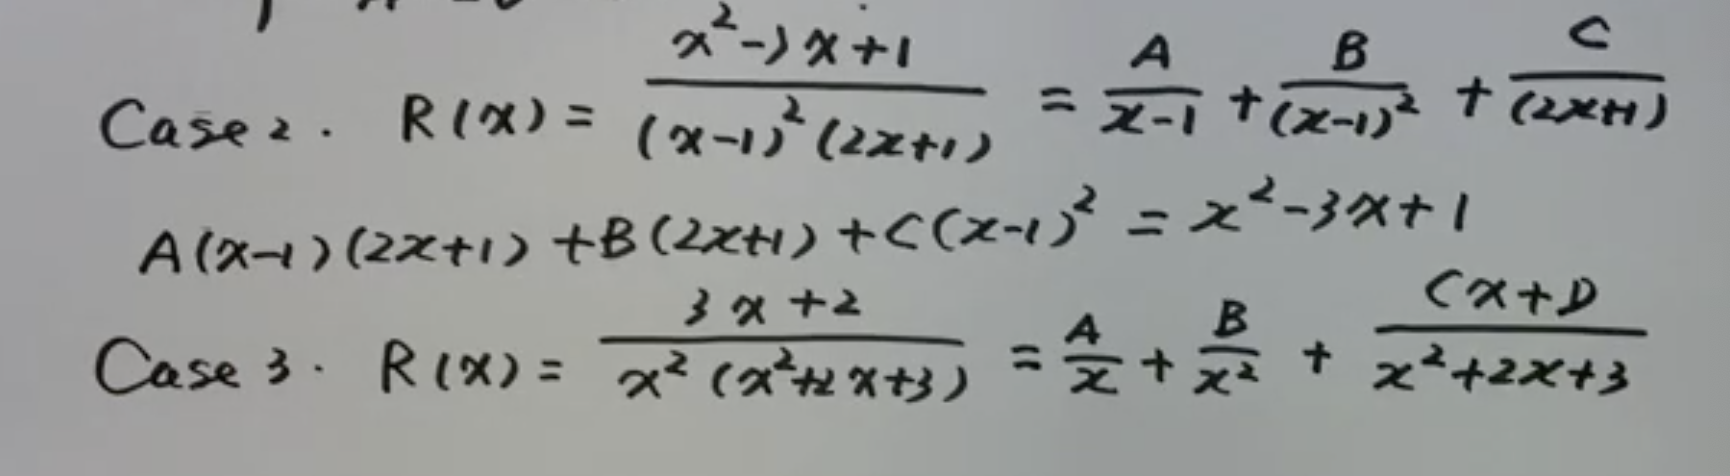 Case 2. R(x) = \frac{x^2-3x+1}{(x-1)^2(2x+1)} = \frac{A}{x-1} + \frac{B}{(x-1)^2} + \frac{C}{(2x+1)}
A(x-1)(2x+1) + B(2x+1) + C(x-1)^2 = x^2-3x+1
Case 3. R(x) = \frac{3x+2}{x^2(x^2+2x+3)} = \frac{A}{x} + \frac{B}{x^2} + \frac{Cx+D}{x^2+2x+3}